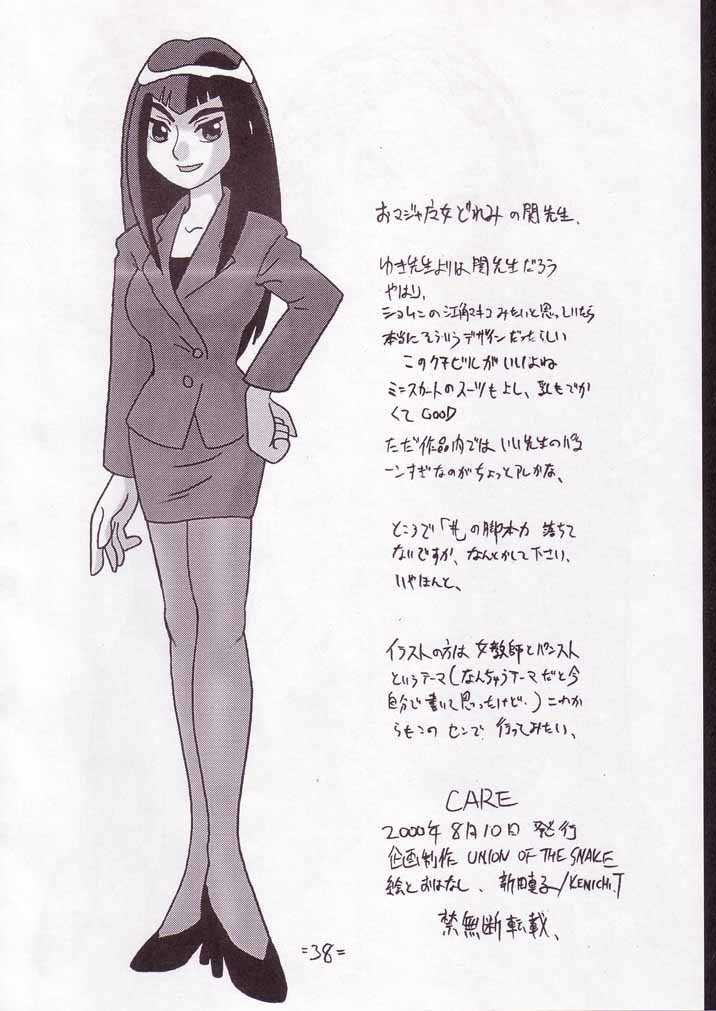 おジャ魔女どれみの関先生、
ゆき先生よりは関先生だろう
やはり、
ショムニの江角マキコみたいと思っていたら
本当にそういうデザインだったらしい
このクチビルがいいよね
ミニスカートのスーツもよし、乳もでか
くてGOOD
ただ作品内ではいい先生のパタ
ーンすぎなのがちょっとアレかな、
ところで「#」の脚本力 落ちて
ないですか、なんとかして下さい、
いやほんと、
イラストの方は女教師とパンスト
というテーマ(なんちゅうテーマだと今
自分で書いて思ったけど・)これか
らもこのセンで行ってみたい、
CARE
2000年8月10日 発行
企画制作 UNION OF THE SNAKE
絵とおはなし、新田真子/KENICHI.T
禁無断転載、
=38=